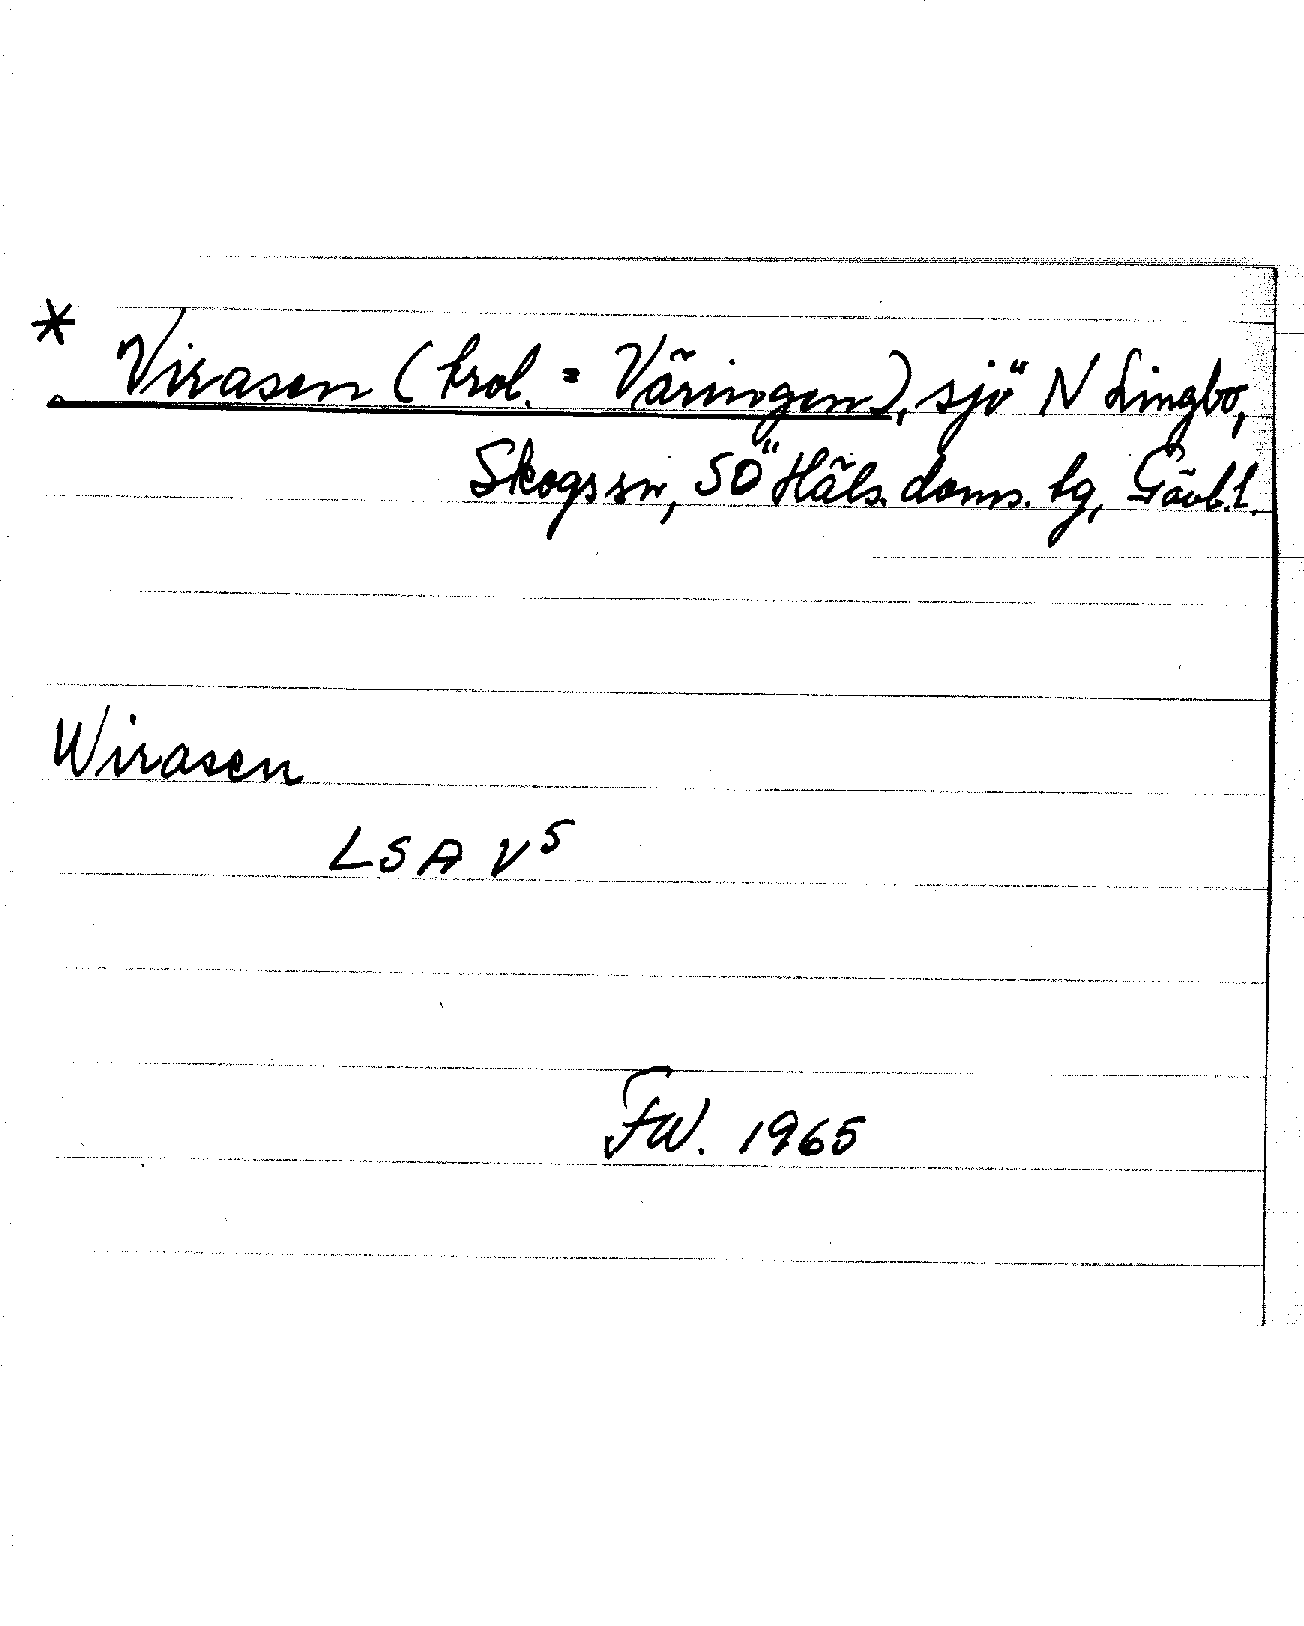 * Virasen (trol. = Väringen), sjö N Lingbo,
Skogs sn, SÖ Häls. doms. tg, Gävl. l.
Wirasen
LSA V5
FW. 1965